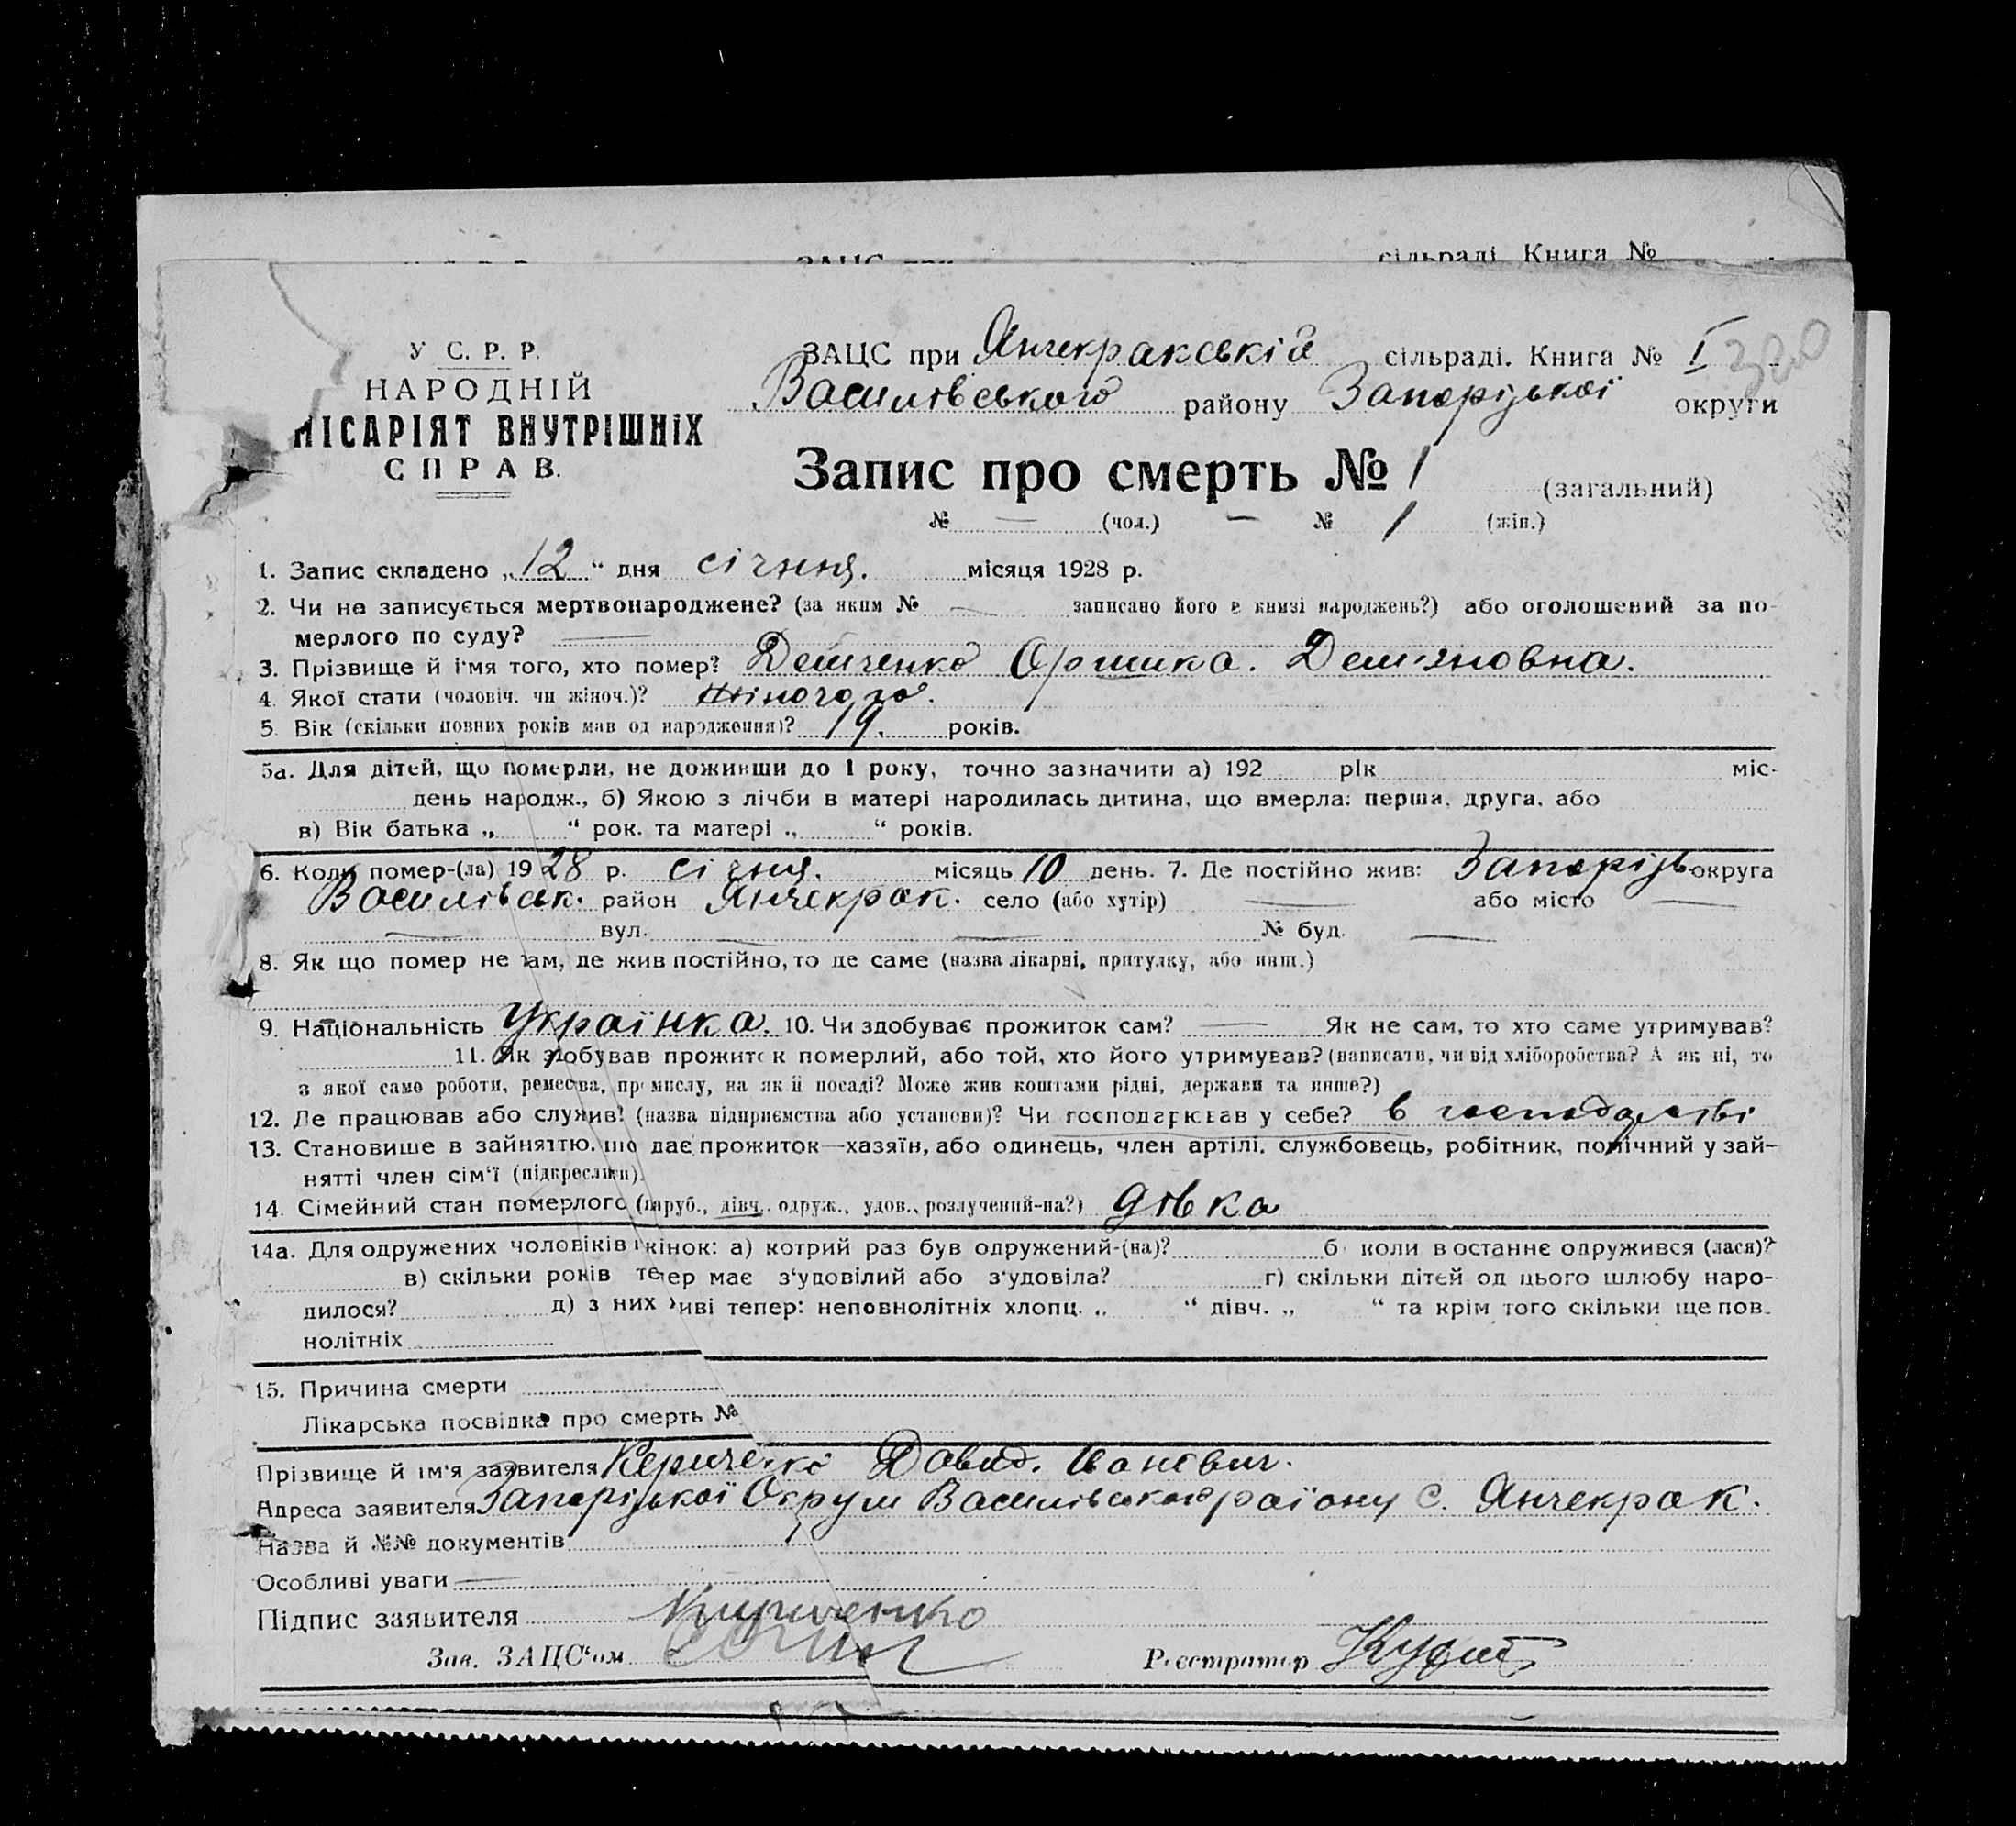 сільраді. Книга №
У С. Р. Р.
НАРОДНІЙ
МІСАРІЯТ ВНУТРІШНІХ
СПРАВ.
ЗАЦС при Янчекракській сільраді. Книга № I 320
Василівського району Запорізької округи
Запис про смерть № 1 (загальний)
№ — (чол.) — № 1 (жін.)
1. Запис складено „12“ дня січння. місяця 1928 р.
2. Чи не записується мертвонароджене? (за яким № — записано його в книзі народжень?) або оголошений за по-
мерлого по суду? —
3. Прізвище й ім'я того, хто помер? Демченко Оришка. Дем'яновна.
4. Якої стати (чоловіч. чи жіноч.)? жіночого.
5. Вік (скільки повних років мав од народження)? 19. років.
5а. Для дітей, що померли, не доживши до 1 року, точно зазначити а) 192 рік міс.
день народж., б) Якою з лічби в матері народилась дитина, що вмерла: перша, друга, або
в) Вік батька „ “ рок. та матері „ “ років.
6. Коли помер-(ла) 1928 р. січня. місяць 10 день. 7. Де постійно жив: Запорізь округа
Василівськ. район Янчекрак. село (або хутір) — або місто —
— вул. — — № буд. —
8. Як що помер не там, де жив постійно, то де саме (назва лікарні, притулку, або инш.)
9. Національність Українка. 10. Чи здобуває прожиток сам? — Як не сам, то хто саме утримував?
11. Як здобував прожиток померлий, або той, хто його утримував? (написати, чи від хліборобства? А як ні, то
з якої само роботи, ремесва, промислу, на якій посаді? Може жив коштами рідні, держави та инше?)
12. Де працював або служив? (назва підприємства або установи)? Чи господарював у себе? в господарстві
13. Становище в зайняттю, що дає прожиток—хазяїн, або одинець, член артілі, службовець, робітник, помічний у зай-
нятті член сім'ї (підкреслити).
14. Сімейний стан померлого (паруб., дівч., одруж., удов., розлучений-на?) дівка
14а. Для одружених чоловіків і жінок: а) котрий раз був одружений-(на)? б) коли востаннє одружився (лася)?
в) скільки років тепер має з'удовілий або з'удовіла? г) скільки дітей од цього шлюбу наро-
дилося? д) з них живі тепер: неповнолітніх хлопц. „ “ дівч. „ “ та крім того скільки ще пов-
нолітніх
15. Причина смерти
Лікарська посвідка про смерть №
Прізвище й ім'я заявителя Кериченко Давид. Іванович.
Адреса заявителя Запорізької Округи Василівського району с. Янчекрак.
Назва й №№ документів
Особливі уваги —
Підпис заявителя Кириченко
Зав. ЗАЦС'ом
Реєстратор